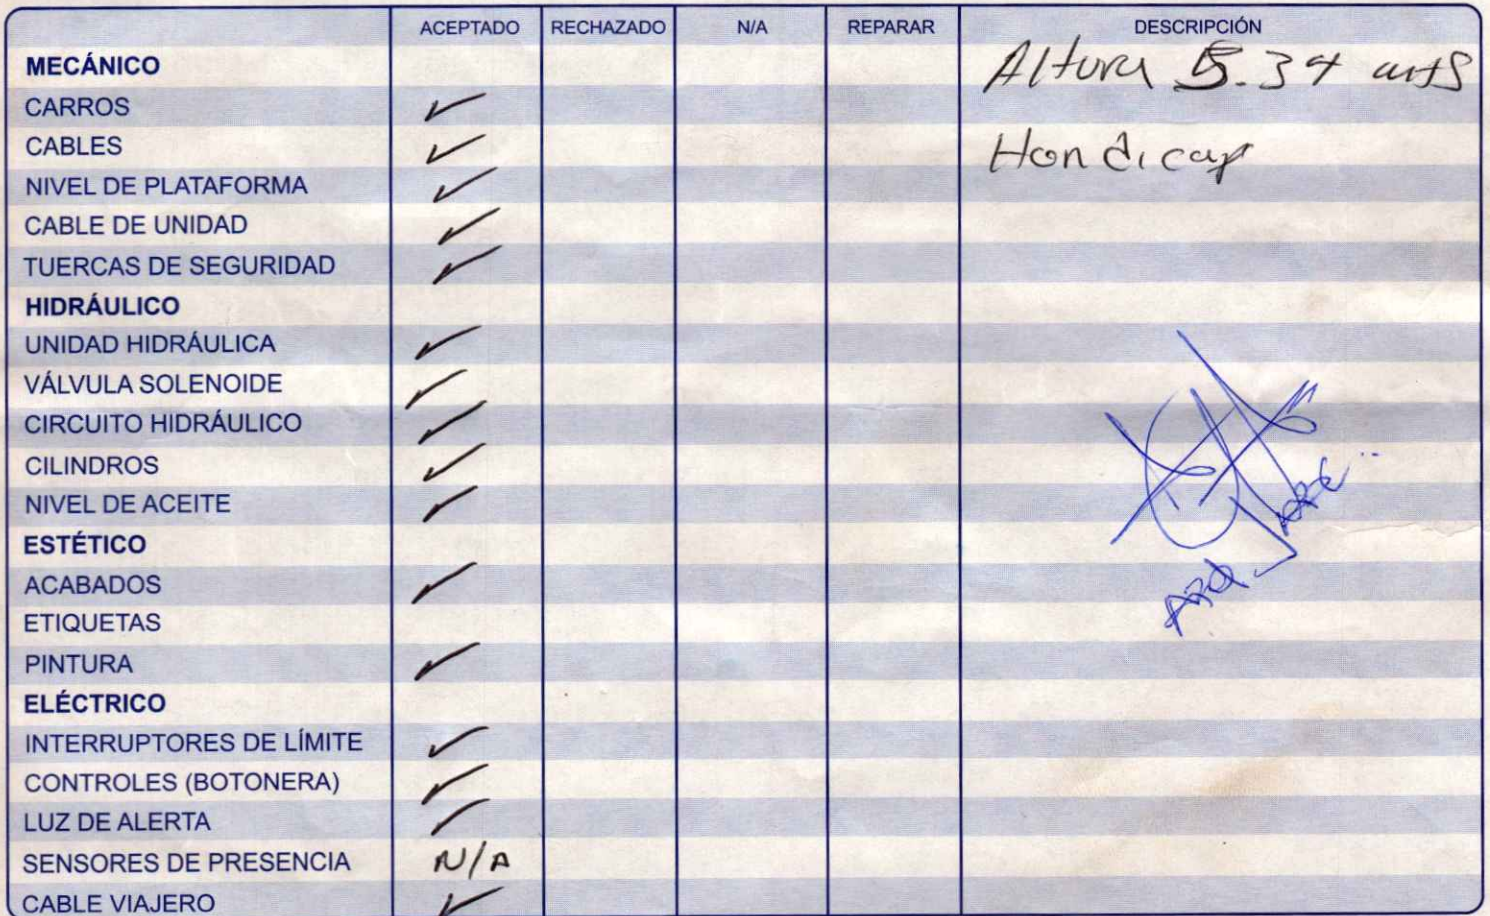 ACEPTADO RECHAZADO N/A REPARAR DESCRIPCIÓN
MECÁNICO Altura 5.34 mts
CARROS ✓
CABLES ✓ Handicap
NIVEL DE PLATAFORMA ✓
CABLE DE UNIDAD ✓
TUERCAS DE SEGURIDAD ✓
HIDRÁULICO
UNIDAD HIDRÁULICA ✓
VÁLVULA SOLENOIDE ✓
CIRCUITO HIDRÁULICO ✓
CILINDROS ✓
NIVEL DE ACEITE ✓
ESTÉTICO
ACABADOS ✓
ETIQUETAS
PINTURA ✓
ELÉCTRICO
INTERRUPTORES DE LÍMITE ✓
CONTROLES (BOTONERA) ✓
LUZ DE ALERTA ✓
SENSORES DE PRESENCIA N/A
CABLE VIAJERO ✓